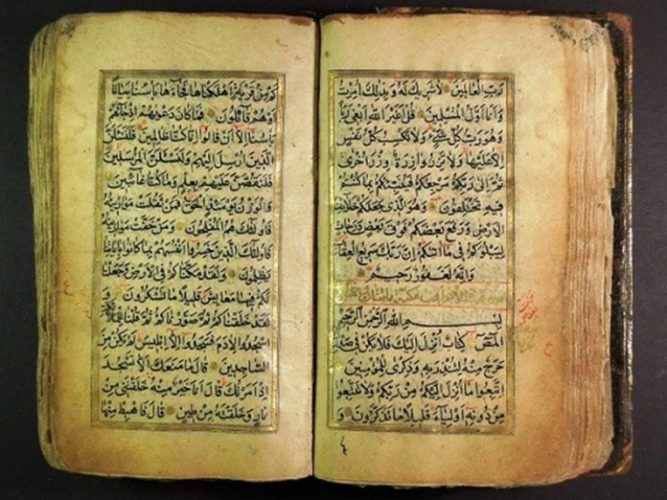 رَبِّ الْعَالَمِينَ لَا شَرِيكَ لَهُ وَبِذَلِكَ أُمِرْتُ
وَأَنَا أَوَّلُ الْمُسْلِمِينَ قُلْ أَغَيْرَ اللَّهِ أَبْغِي رَبًّا
وَهُوَ رَبُّ كُلِّ شَيْءٍ وَلَا تَكْسِبُ كُلُّ نَفْسٍ
إِلَّا عَلَيْهَا وَلَا تَزِرُ وَازِرَةٌ وِزْرَ أُخْرَى
ثُمَّ إِلَى رَبِّكُمْ مَرْجِعُكُمْ فَيُنَبِّئُكُمْ بِمَا كُنْتُمْ
فِيهِ تَخْتَلِفُونَ وَهُوَ الَّذِي جَعَلَكُمْ خَلَائِفَ
الْأَرْضِ وَرَفَعَ بَعْضَكُمْ فَوْقَ بَعْضٍ دَرَجَاتٍ
لِيَبْلُوَكُمْ فِي مَا آتَيكُمْ إِنَّ رَبَّكَ سَرِيعُ الْعِقَابِ
وَإِنَّهُ لَغَفُورٌ رَحِيمٌ
بِسْمِ اللَّهِ الرَّحْمَنِ الرَّحِيمِ
المص كِتَابٌ أُنْزِلَ إِلَيْكَ فَلَا يَكُنْ فِي صَدْرِكَ
حَرَجٌ مِنْهُ لِتُنْذِرَ بِهِ وَذِكْرَى لِلْمُؤْمِنِينَ
اتَّبِعُوا مَا أُنْزِلَ إِلَيْكُمْ مِنْ رَبِّكُمْ وَلَا تَتَّبِعُوا
مِنْ دُونِهِ أَوْلِيَاءَ قَلِيلًا مَا تَذَكَّرُونَ وَ
كَمْ مِنْ قَرْيَةٍ أَهْلَكْنَاهَا فَجَاءَهَا بَأْسُنَا بَيَاتًا
أَوْ هُمْ قَائِلُونَ فَمَا كَانَ دَعْوَيهُمْ إِذْ جَاءَهُمْ
بَأْسُنَا إِلَّا أَنْ قَالُوا إِنَّا كُنَّا ظَالِمِينَ فَلَنَسْئَلَنَّ
الَّذِينَ أُرْسِلَ إِلَيْهِمْ وَلَنَسْئَلَنَّ الْمُرْسَلِينَ
فَلَنَقُصَّنَّ عَلَيْهِمْ بِعِلْمٍ وَمَا كُنَّا غَائِبِينَ
وَالْوَزْنُ يَوْمَئِذٍ الْحَقُّ فَمَنْ ثَقُلَتْ مَوَازِينُهُ
فَأُولَئِكَ هُمُ الْمُفْلِحُونَ وَمَنْ خَفَّتْ مَوَازِينُهُ
فَأُولَئِكَ الَّذِينَ خَسِرُوا أَنْفُسَهُمْ بِمَا كَانُوا بِآيَاتِنَا
يَظْلِمُونَ وَلَقَدْ مَكَّنَّاكُمْ فِي الْأَرْضِ وَجَعَلْنَا
لَكُمْ فِيهَا مَعَايِشَ قَلِيلًا مَا تَشْكُرُونَ وَ
لَقَدْ خَلَقْنَاكُمْ ثُمَّ صَوَّرْنَاكُمْ ثُمَّ قُلْنَا لِلْمَلَائِكَةِ
اسْجُدُوا لِآدَمَ فَسَجَدُوا إِلَّا إِبْلِيسَ لَمْ يَكُنْ مِنَ
السَّاجِدِينَ قَالَ مَا مَنَعَكَ أَلَّا تَسْجُدَ
إِذْ أَمَرْتُكَ قَالَ أَنَا خَيْرٌ مِنْهُ خَلَقْتَنِي مِنْ
نَارٍ وَخَلَقْتَهُ مِنْ طِينٍ قَالَ فَاهْبِطْ مِنْهَا